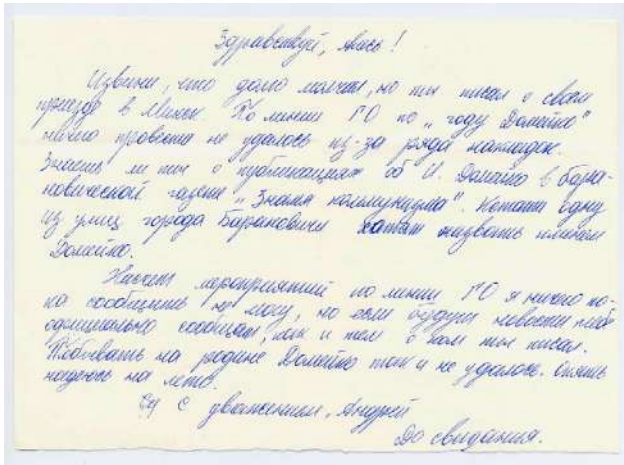 Здравствуй, Алесь!
Извини, что долго молчал, но ты писал о своем
приезде в Минск. По линии ГО по „году Домейко"
ничего провести не удалось из-за ряда накладок.
Знаешь ли ты о публикациях об И. Домейко в бара-
новичской газете „Знамя коммунизма". Кстати одну
из улиц города Барановичи хотят назвать именем
Домейко.
Насчет мероприятий по линии ГО я ничего по-
ка сообщить не могу, но если будут новости тебе
официально сообщат, как и тем о ком ты писал.
Побывать на родине Домейко так и не удалось. Опять
надеюсь на лето.
С уважением, Андрей
До свидания.